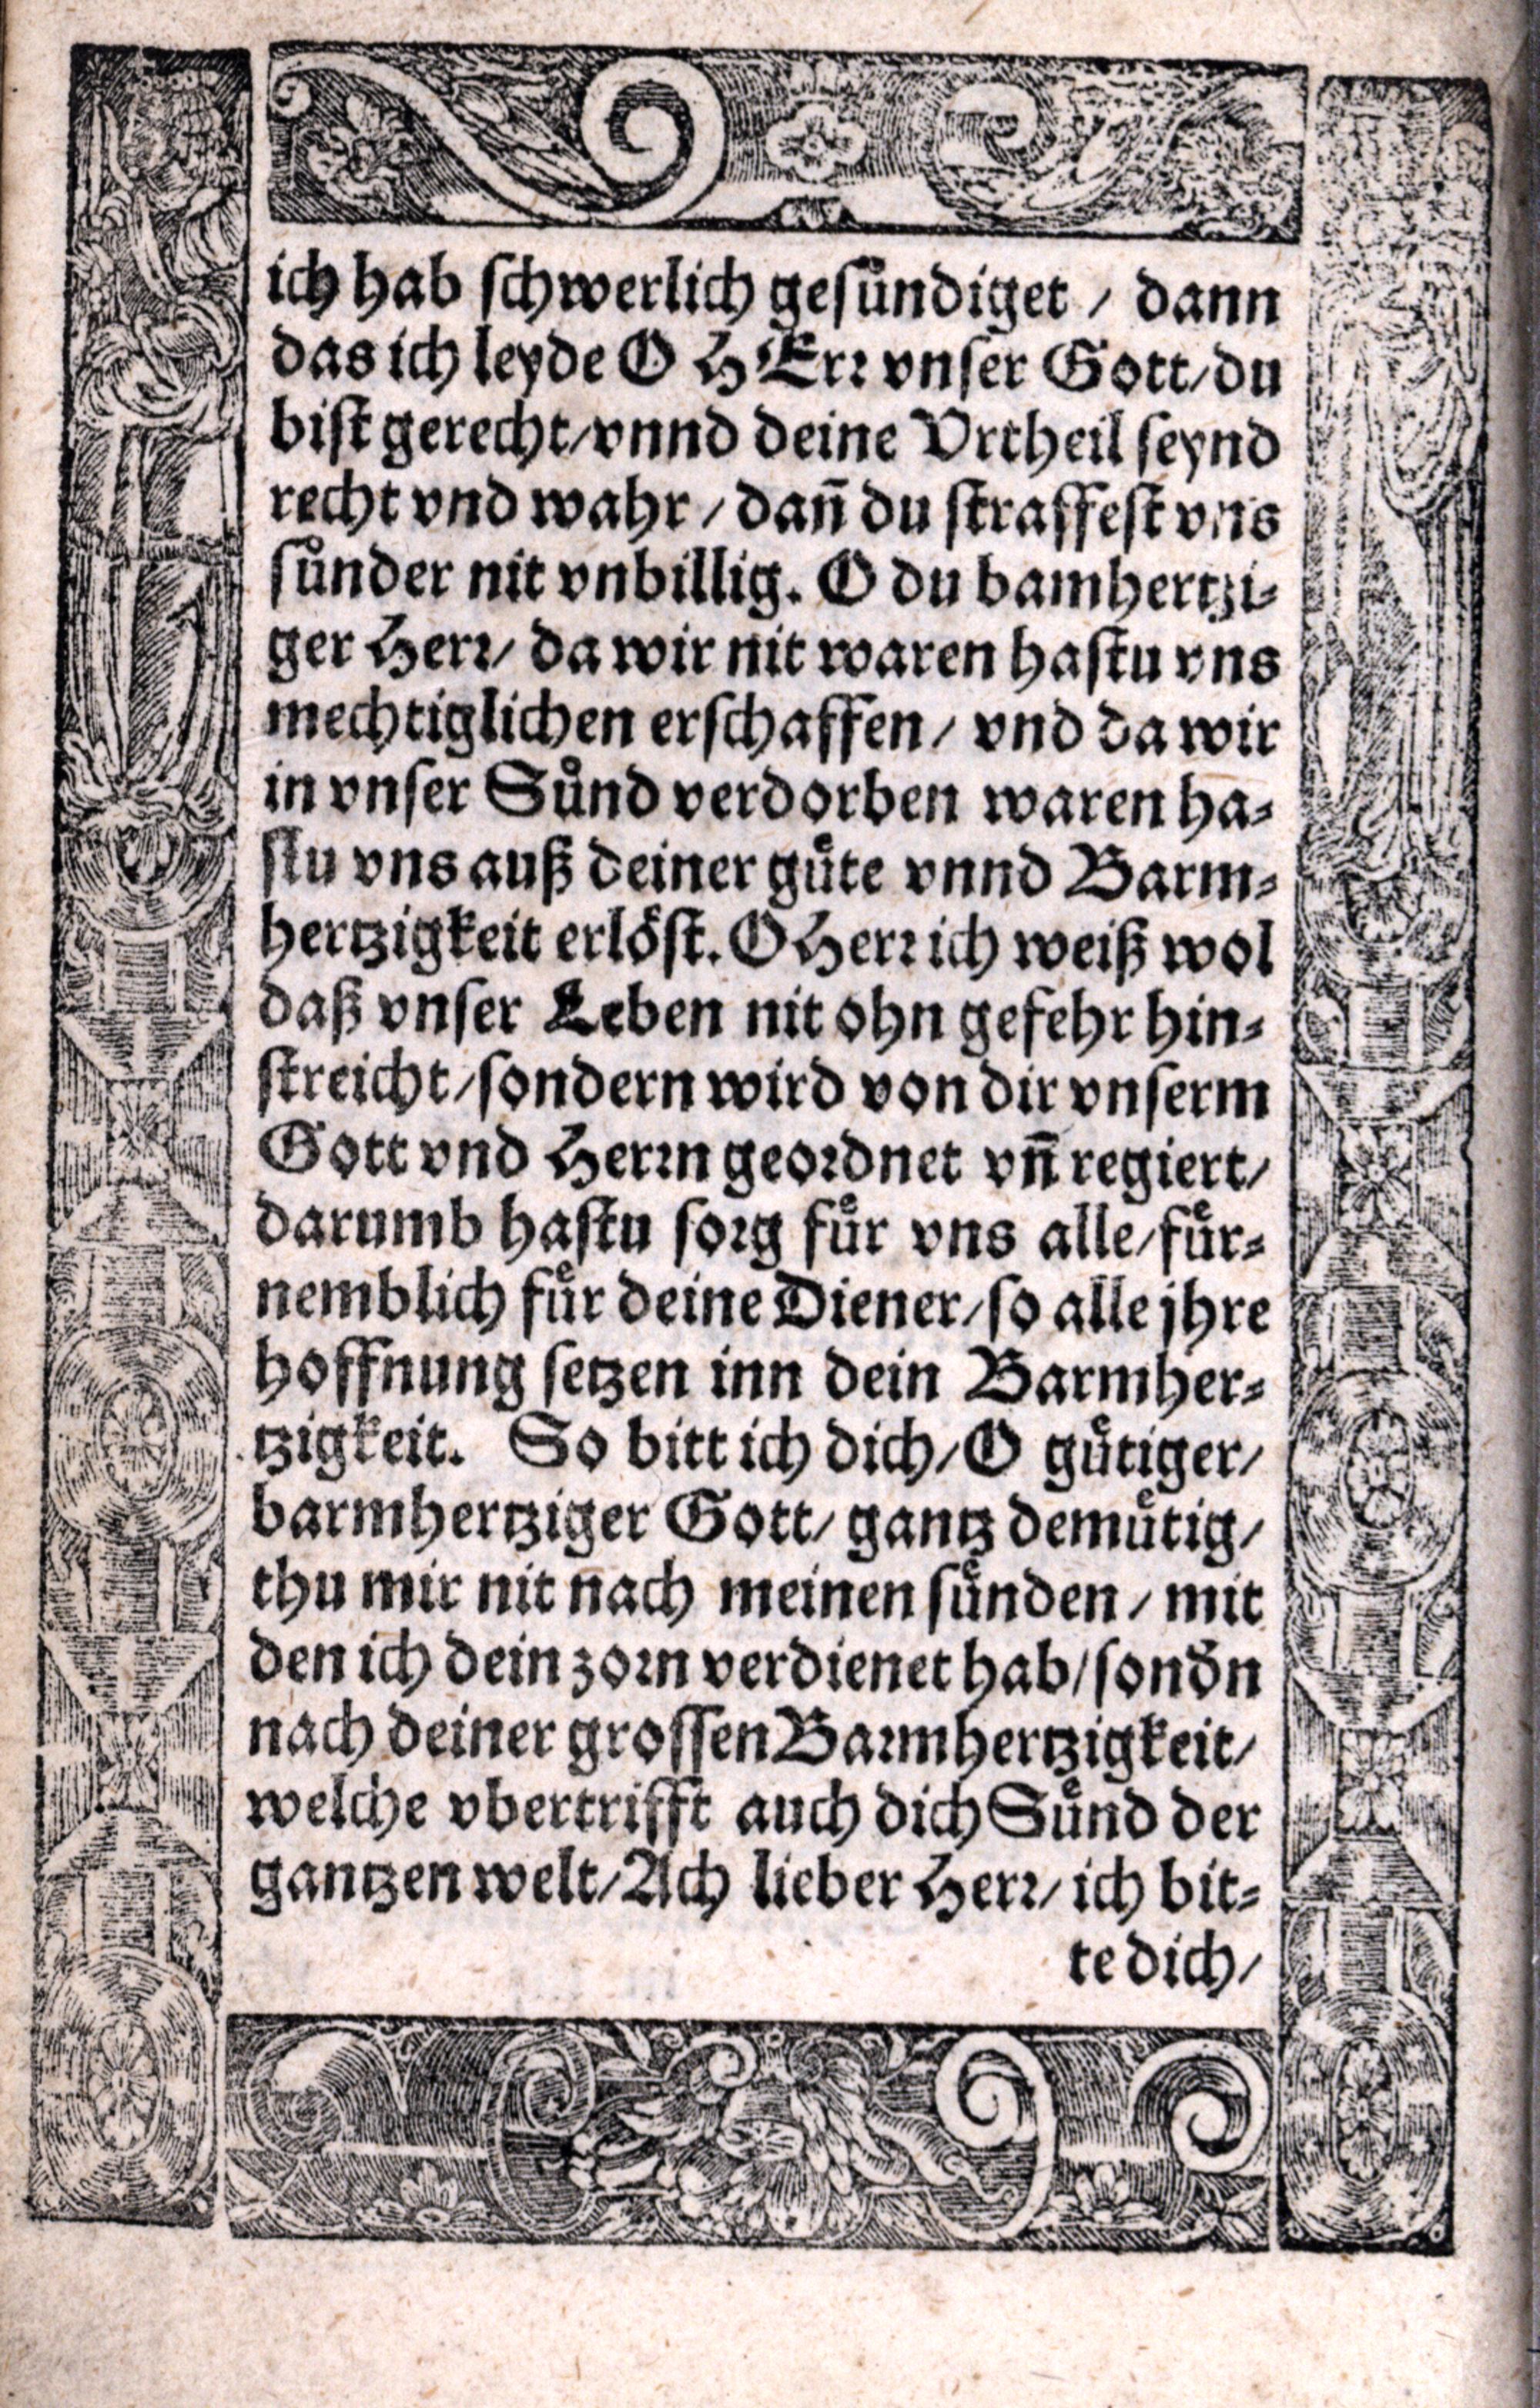 ich hab schwerlich gesuͤndiget / dann
das ich leyde O HErr vnser Gott / du
bist gerecht / vnnd deine Vrtheil seynd
recht vnd wahr / dañ du straffest vns
suͤnder nit vnbillig. O du bamhertzi⸗
ger Herr / da wir nit waren hastu vns
mechtiglichen erschaffen / vnd da wir
in vnser Suͤnd verdorben waren ha⸗
stu vns auß deiner guͤte vnnd Barm⸗
hertzigkeit erloͤst. O Herr ich weiß wol
daß vnser Leben nit ohn gefehr hin⸗
streicht / sondern wird von dir vnserm
Gott vnd Herrn geordnet vñ regiert /
darumb hastu sorg fuͤr vns alle / fuͤr⸗
nemblich fuͤr deine Diener / so alle jhre
hoffnung setzen inn dein Barmher⸗
tzigkeit. So bitt ich dich / O guͤtiger /
barmhertziger Gott / gantz demuͤtig /
thu mir nit nach meinen suͤnden / mit
den ich dein zorn verdienet hab / sond̃n
nach deiner grossen Barmhertzigkeit /
welche vbertrifft auch dich Suͤnd der
gantzen welt / Ach lieber Herr / ich bit⸗
te dich /